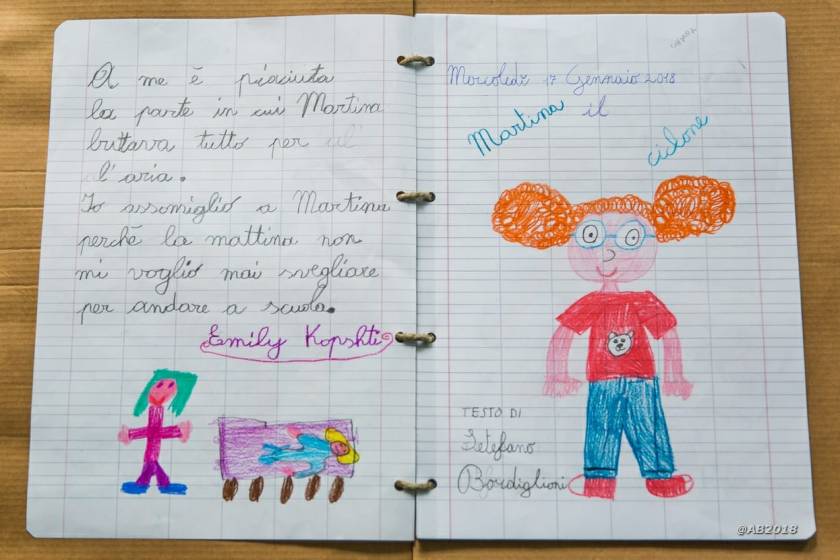 A me è piaciuta
la parte in cui Martina
buttava tutto per
l'aria.
Io assomiglio a Martina
perchè la mattina non
mi voglio mai svegliare
per andare a scuola.
Emily Kopshti
Mercoledì 17 Gennaio 2018
Martina il
ciclone
TESTO DI
Setefano
Bordiglioni
@AB2018